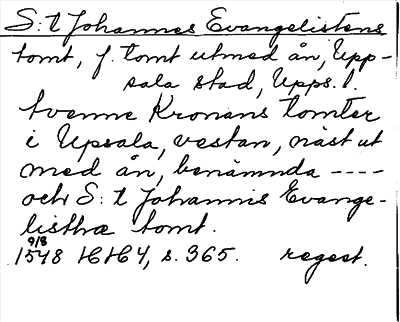 S:t Johannes Evangelistens
tomt, f. tomt utmed ån, Upp-
sala stad, Upps. l.
tvenne Kronans tomter
i Upsala, vestan, näst ut
med ån, benämnda ----
och S:t Johannis Evange-
listhæ tomt.
9/8
1548 HH 4, s. 365. regest.